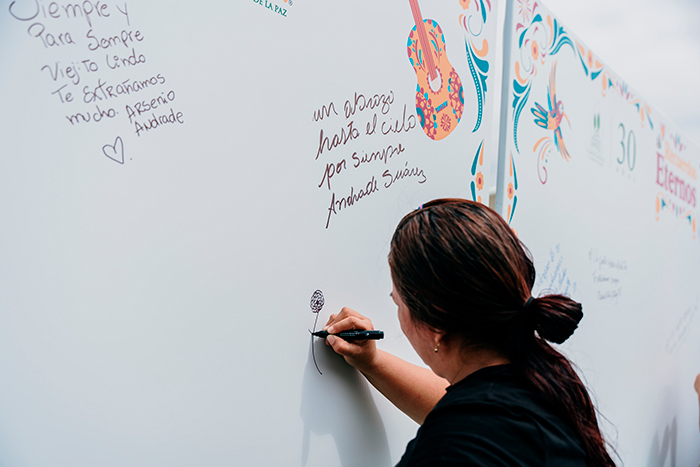 Siempre y
Para Siempre
Viejito Lindo
Te Extrañamos
mucho. Arsenio
Andrade
DE LA PAZ
un abrazo
hasta el cielo
por siempre
Andrade Suárez
30
Eternos